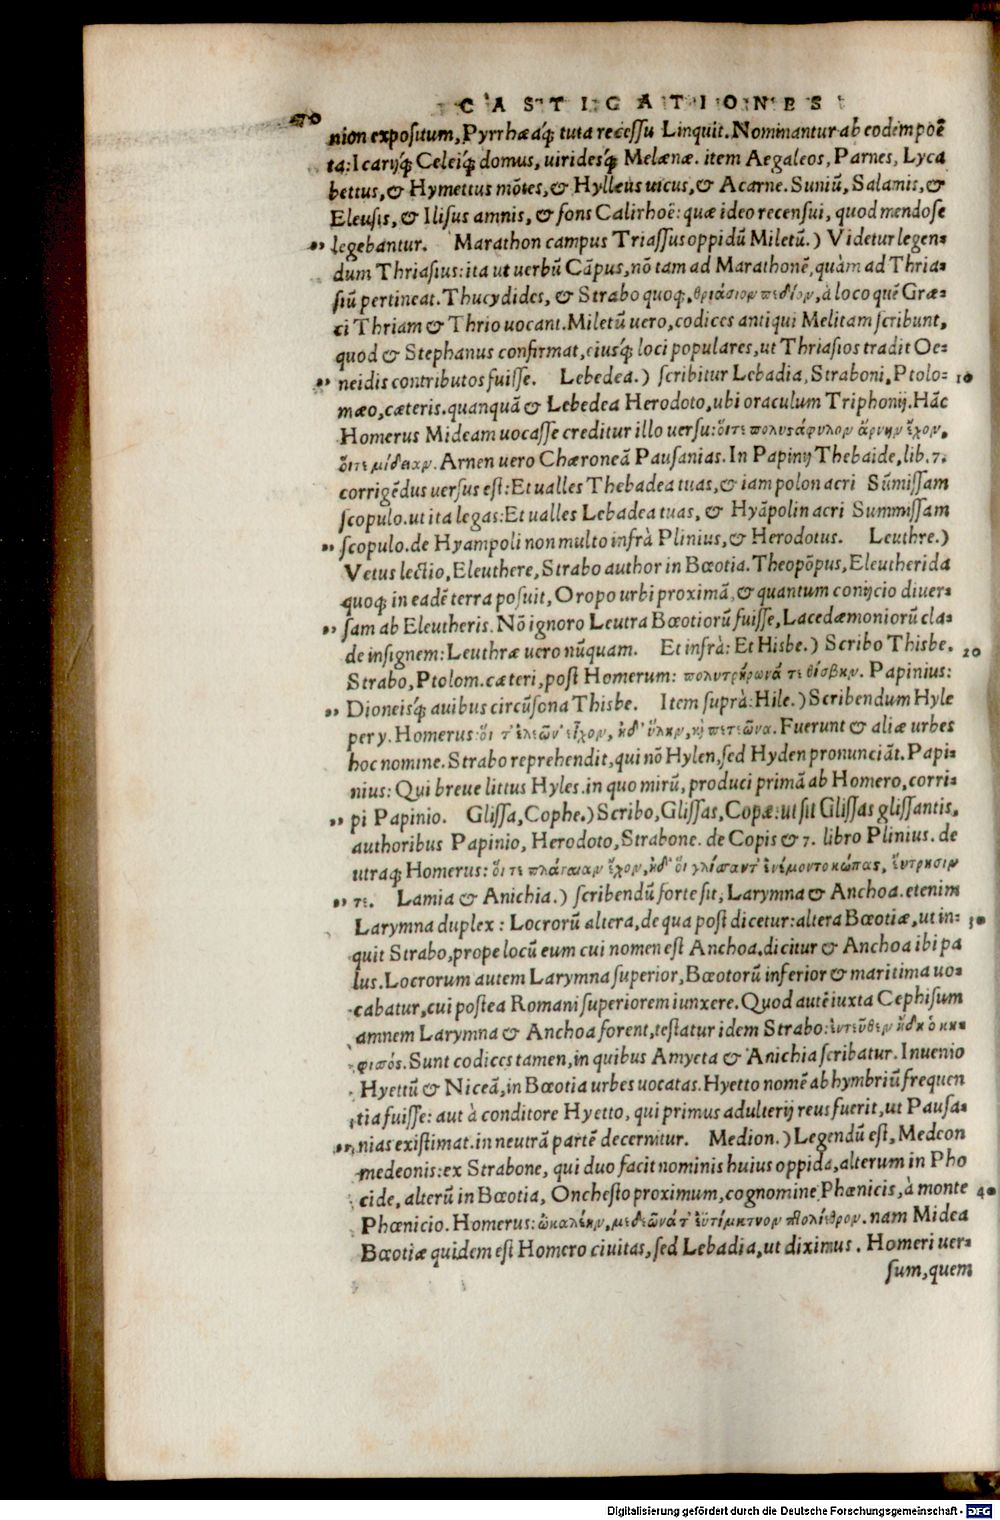 70
CASTIGATIONES
nion expositum, Pyrrhæaq́; tuta recessu Linquit. Nominantur ab eodem poë
ta: Icarijq́; Celeiq́; domus, uiridesq́; Melænæ. item Aegaleos, Parnes, Lyca
bettus, & Hymettus mõtes, & Hylleus uicus, & Acarne. Suniũ, Salamis, &
Eleusis, & Ilisus amnis, & fons Calirhoë: quæ ideo recensui, quod mendose
„ legebantur. Marathon campus Triassus oppidũ Miletũ.) Videtur legen-
dum Thriasius: ita ut uerbũ Cãpus, nõ tam ad Marathonẽ, quàm ad Thria-
siũ pertineat. Thucydides, & Strabo quoq́;, θριάσιον πεδίον, à loco quẽ Græ-
ci Thriam & Thrio uocant. Miletũ uero, codices antiqui Melitam scribunt,
quod & Stephanus confirmat, eiusq́; loci populares, ut Thriasios tradit Oe-
„ neidis contributos fuisse. Lebedea.) scribitur Lebadia, Straboni, Ptolo- 10
mæo, cæteris. quanquã & Lebedea Herodoto, ubi oraculum Triphonij. Hãc
Homerus Mideam uocasse creditur illo uersu: οἵτε πολυστάφυλον ἄρνην ἔχον,
οἵτε μίδειαν. Arnen uero Chæroneã Pausanias. In Papinij Thebaide, lib. 7.
corrigẽdus uersus est: Et ualles Thebadea tuas, & iam polon acri Sũmissam
scopulo. ut ita legas: Et ualles Lebadea tuas, & Hyãpolin acri Summissam
„ scopulo. de Hyampoli non multo infrà Plinius, & Herodotus. Leuthre.)
Vetus lectio, Eleuthere, Strabo author in Bœotia. Theopõpus, Eleutherida
quoq́; in eadẽ terra posuit, Oropo urbi proximã, & quantum conijcio diuer-
„ sam ab Eleutheris. Nõ ignoro Leutra Bœotiorũ fuisse, Lacedæmoniorũ cla-
de insignem: Leuthræ uero nũquam. Et infrà: Et Hisbe.) Scribo Thisbe. 20
Strabo, Ptolom. cæteri, post Homerum: πολυτρήρωνά τε θίσβην. Papinius:
„ Dioneisq́; auibus circũsona Thisbe. Item suprà: Hile.) Scribendum Hyle
per y. Homerus: οἵ τ' ἐλεῶν' εἶχον, ἠδ' ὕλην, κỳ πετεῶνα. Fuerunt & aliæ urbes
hoc nomine. Strabo reprehendit, qui nõ Hylen, sed Hyden pronunciãt. Papi-
nius: Qui breue littus Hyles. in quo mirũ, produci primã ab Homero, corri-
„ pi Papinio. Glissa, Cophe.) Scribo, Glissas, Copæ: ut sit Glissas glissantis,
authoribus Papinio, Herodoto, Strabone. de Copis & 7. libro Plinius. de
utraq́; Homerus: οἵ τε πλάταιαν ἔχον, ἠδ' οἳ γλίσαντ' ἐνέμοντο κώπας, εὔτρησιν
„ τε. Lamia & Anichia.) scribendũ forte sit, Larymna & Anchoa. etenim
Larymna duplex: Locrorũ altera, de qua post dicetur: altera Bœotiæ, ut in- 30
quit Strabo, prope locũ eum cui nomen est Anchoa. dicitur & Anchoa ibi pa
lus. Locrorum autem Larymna superior, Bœotorũ inferior & maritima uo-
cabatur, cui postea Romani superiorem iunxere. Quod autẽ iuxta Cephisum
amnem Larymna & Anchoa forent, testatur idem Strabo: ἐντεῦθεν ἤδη ὁ κη-
φισσός. Sunt codices tamen, in quibus Amyeta & Anichia scribatur. Inuenio
Hyettũ & Niceã, in Bœotia urbes uocatas. Hyetto nomẽ ab hymbriũ frequen
tia fuisse: aut à conditore Hyetto, qui primus adulterij reus fuerit, ut Pausa-
„ nias existimat. in neutrã partẽ decernitur. Medion.) Legendũ est, Medeon
medeonis: ex Strabone, qui duo facit nominis huius oppida, alterum in Pho
cide, alterũ in Bœotia, Onchesto proximum, cognomine Phœnicis, à monte 40
Phœnicio. Homerus: ὠκαλέην, μεδεῶνά τ' ἐϋκτίμενον πτολίεθρον. nam Midea
Bœotiæ quidem est Homero ciuitas, sed Lebadia, ut diximus. Homeri uer-
sum, quem
Digitalisierung gefördert durch die Deutsche Forschungsgemeinschaft - DFG